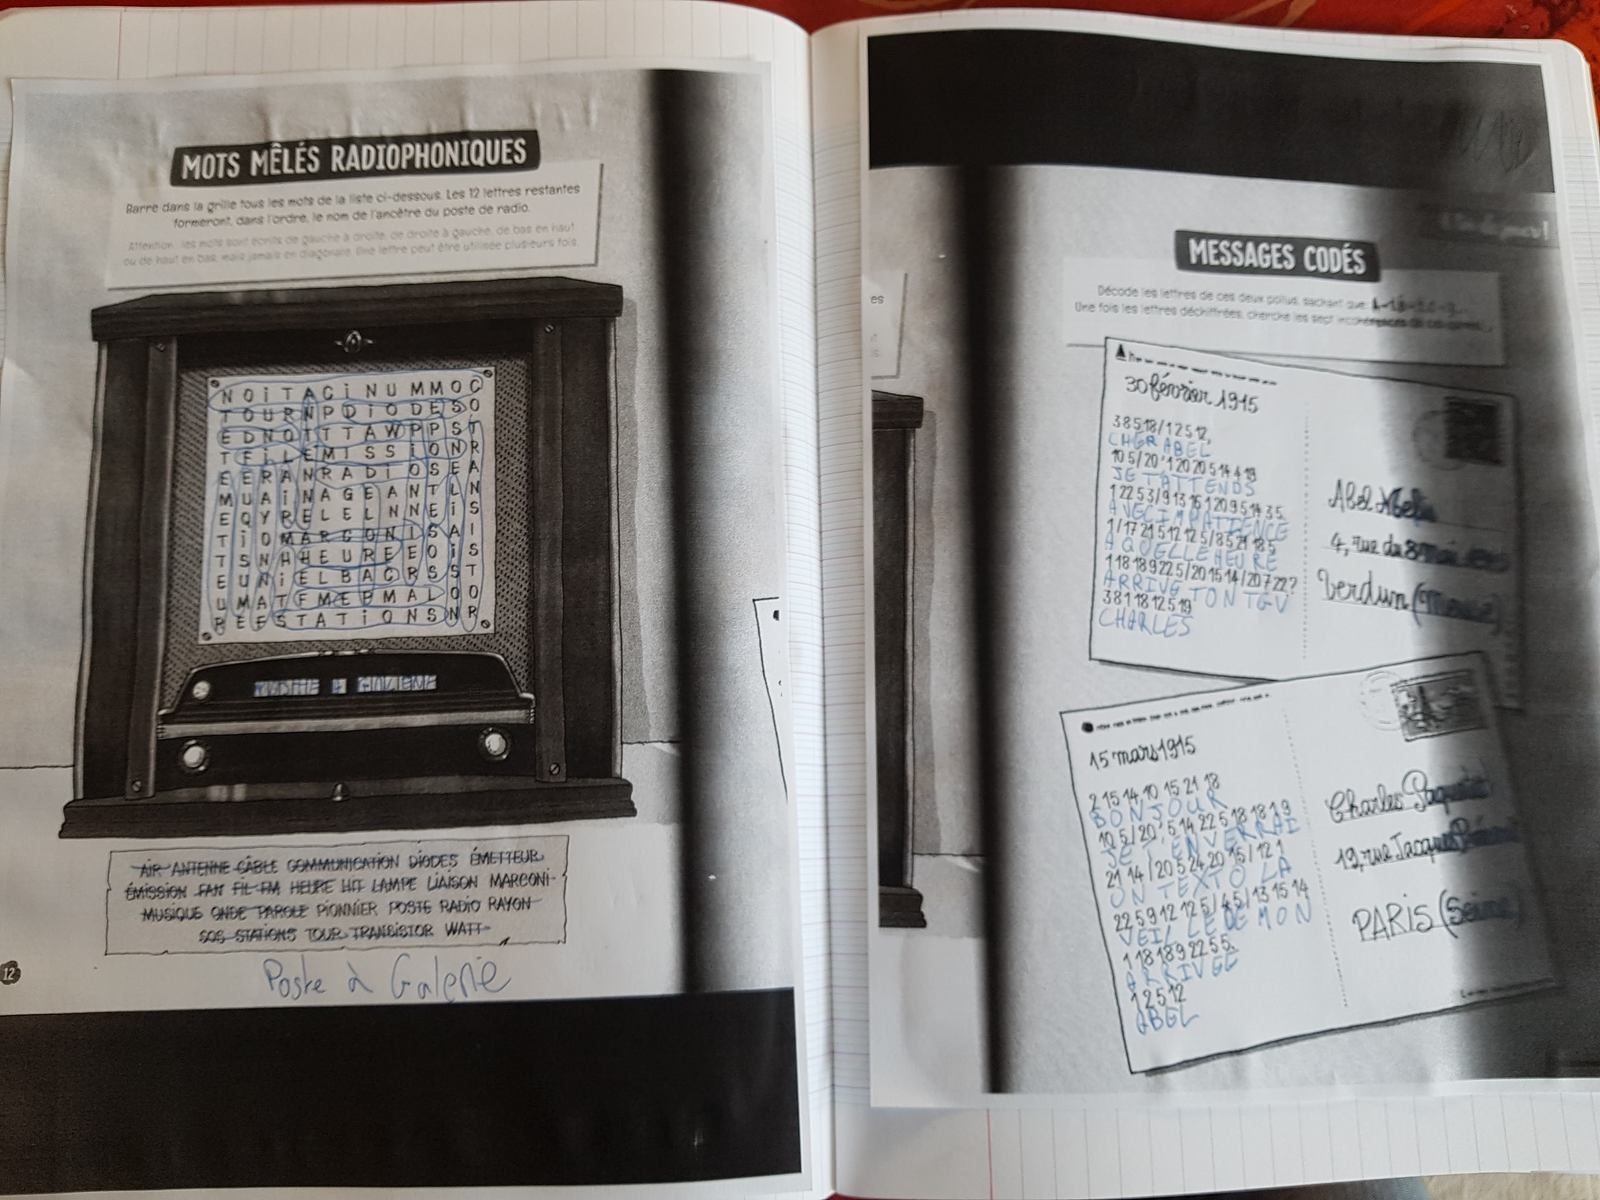 MOTS MÊLÉS RADIOPHONIQUES
Barre dans la grille tous les mots de la liste ci-dessous. Les 12 lettres restantes
formeront, dans l'ordre, le nom de l'ancêtre du poste de radio.
Attention : les mots sont écrits de gauche à droite, de droite à gauche, de bas en haut
ou de haut en bas, mais jamais en diagonale. Une lettre peut être utilisée plusieurs fois.
NOITACINUMMOC
TOURNPDIODESO
EDNOTTTAWPPST
TFILEMISSIONR
EERANRADIOSEA
MUAINAGEANTLN
EQYRELELNNEIS
TIOMARCONISAI
TSNHHEUREEOIS
EUNIELBACRSST
UMATFMEPMALOO
REFSTATIONSNR
AIR ANTENNE CÂBLE COMMUNICATION DIODES ÉMETTEUR
ÉMISSION FAN FIL FM HEURE HIT LAMPE LIAISON MARCONI
MUSIQUE ONDE PAROLE PIONNIER POSTE RADIO RAYON
SOS STATIONS TOUR TRANSISTOR WATT
12
Poste à Galerie
es
MESSAGES CODÉS
Décode les lettres de ces deux poilus, sachant que
Une fois les lettres déchiffrées, cherche les sept
30 février 1915
3 8 5 18/1 2 5 12,
CHER ABEL
10 5/20'1 20 20 5 14 4 19
JE T'ATTENDS
1 22 5 3/9 13 16 1 20 9 5 14 3 5.
AVEC IMPATIENCE
1/17 21 5 12 12 5/8 5 21 18 5
A QUELLE HEURE
1 18 18 9 22 5/20 15 14/20 7 22?
ARRIVE TON TGV
3 8 1 18 12 5 19
CHARLES
Abel
4, rue du 8 mai
Verdun (Meuse)
15 mars 1915
2 15 14 10 15 21 18
BONJOUR
10 5/20'5 14 22 5 18 18 1 9
JE T'ENVERRAI
21 14/20 5 24 20 15/12 1
UN TEXTO LA
22 5 9 12 12 5/4 5/13 15 14
VEILLE DE MON
1 18 18 9 22 5 5.
ARRIVEE
1 2 5 12
ABEL
Charles
19, rue Jacques
PARIS (Seine)